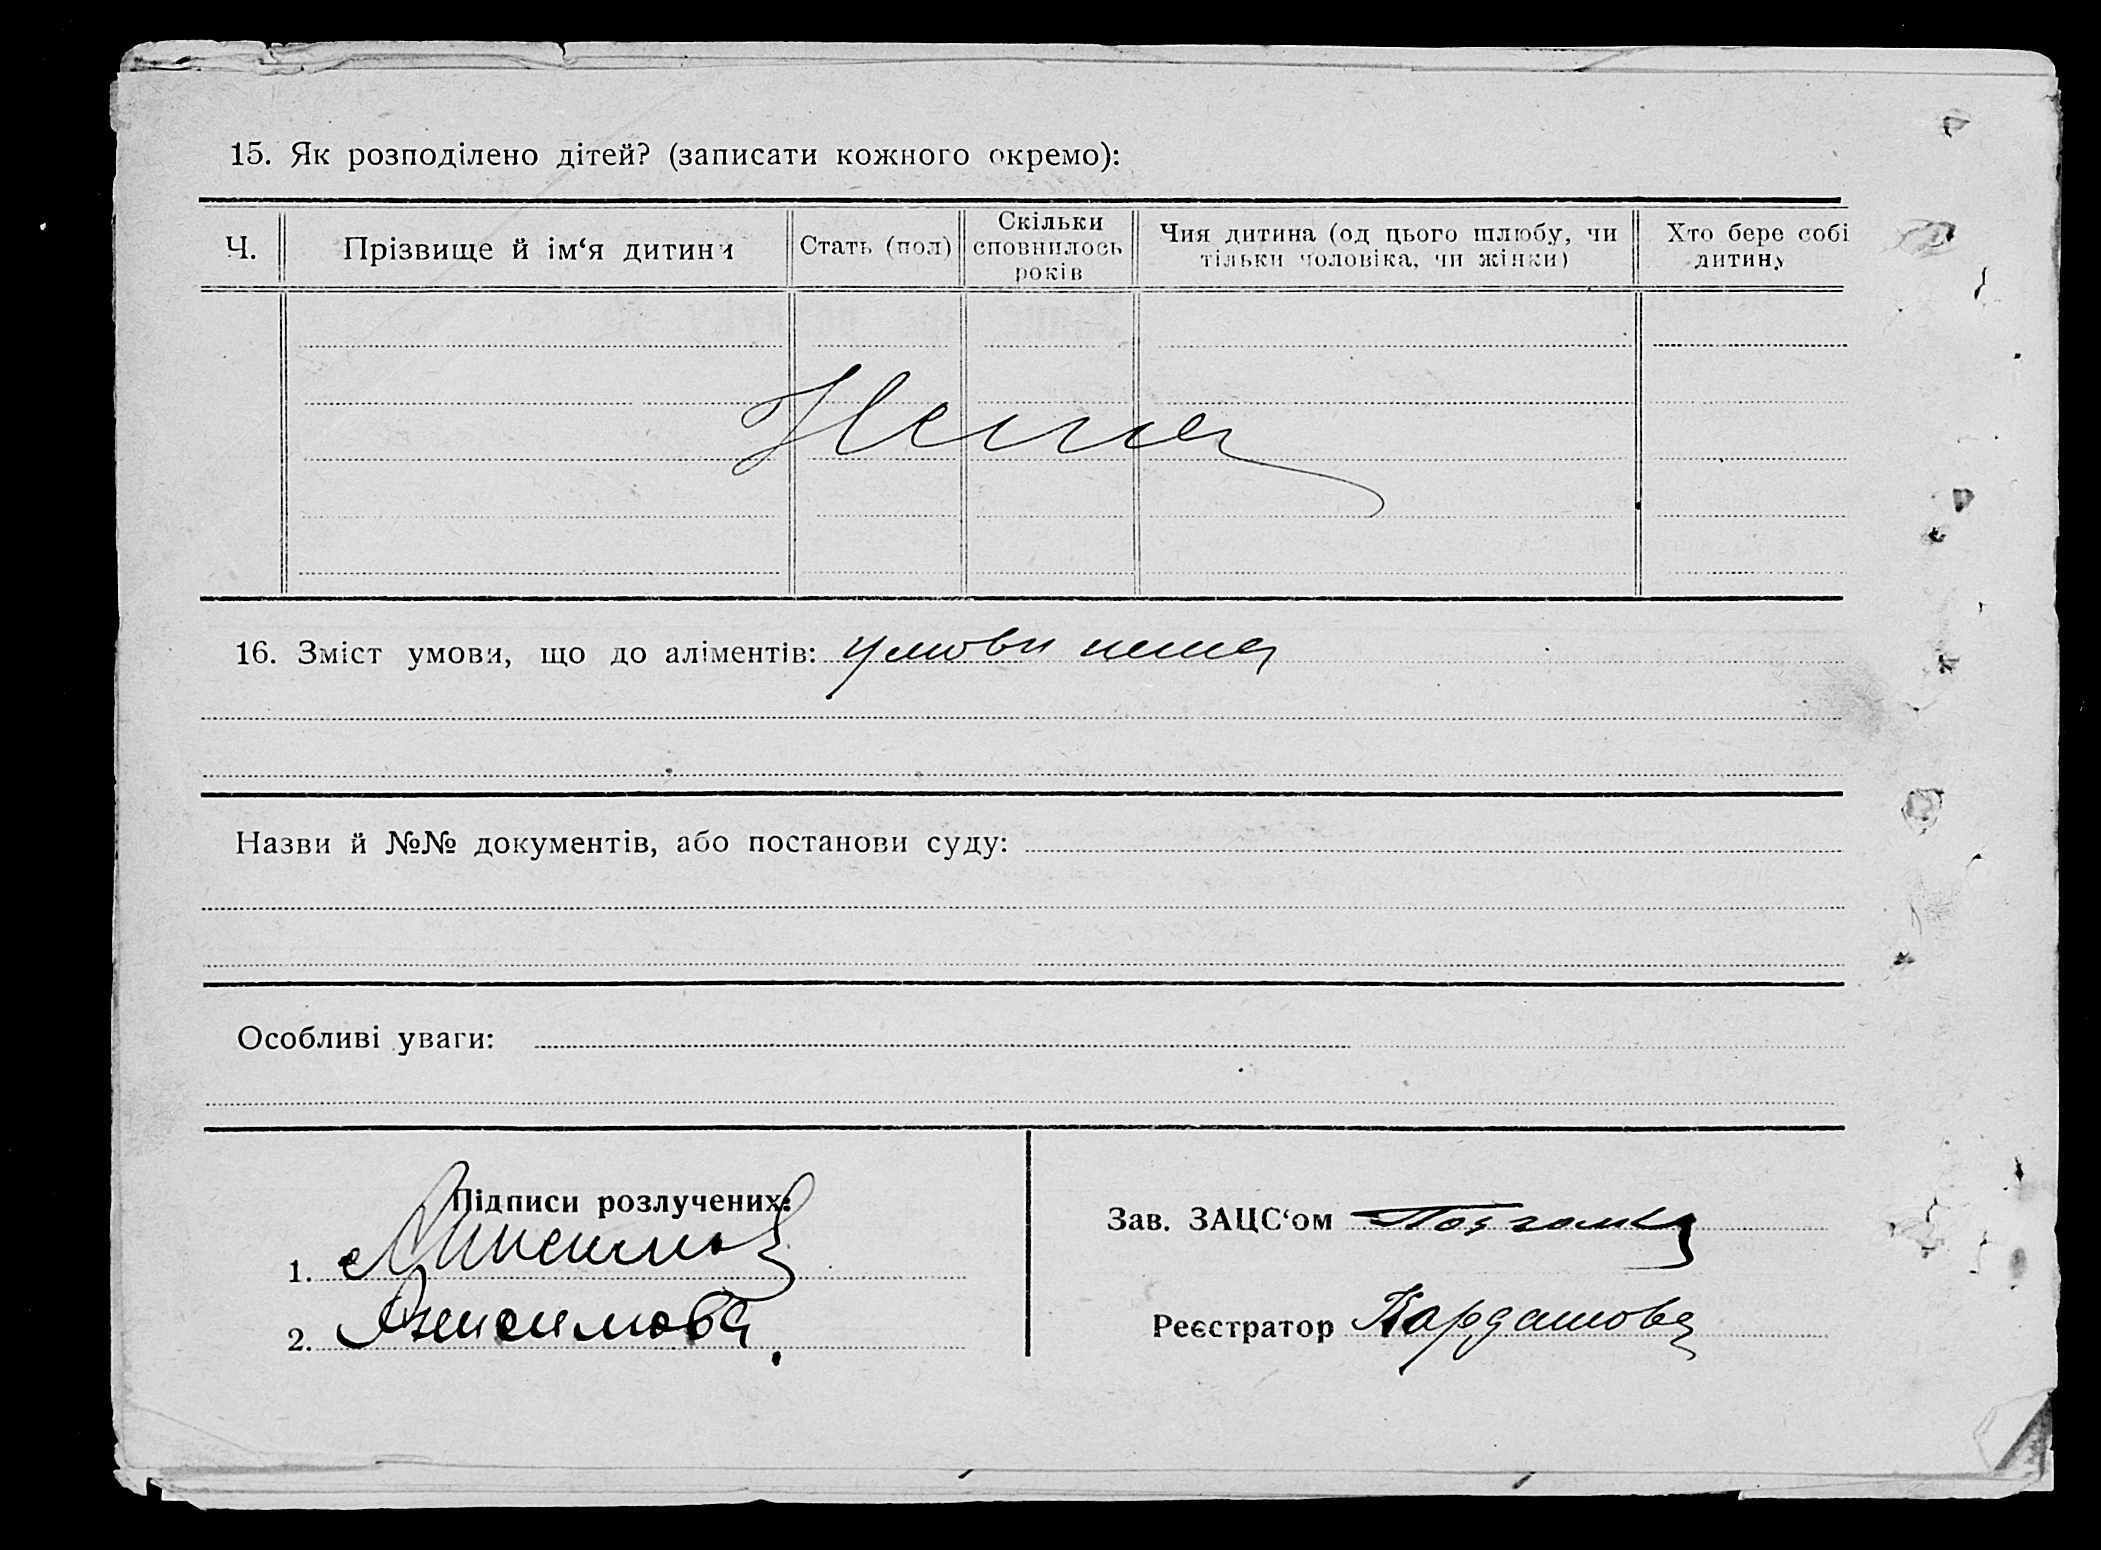 15. Як розподілено дітей? (записати кожного окремо):
Ч.
Прізвище й ім‘я дитини
Стать (пол)
Скільки
сповнилось
років
Чия дитина (од цього шлюбу, чи
тільки чоловіка, чи жінки)
Хто бере собі
дитину
Нема
16. Зміст умови, що до аліментів: умови нема
Назви й №№ документів, або постанови суду:
Особливі уваги:
Підписи розлучених:
1.
2. Анисимова
Зав. ЗАЦС‘ом
Реєстратор Кардашова